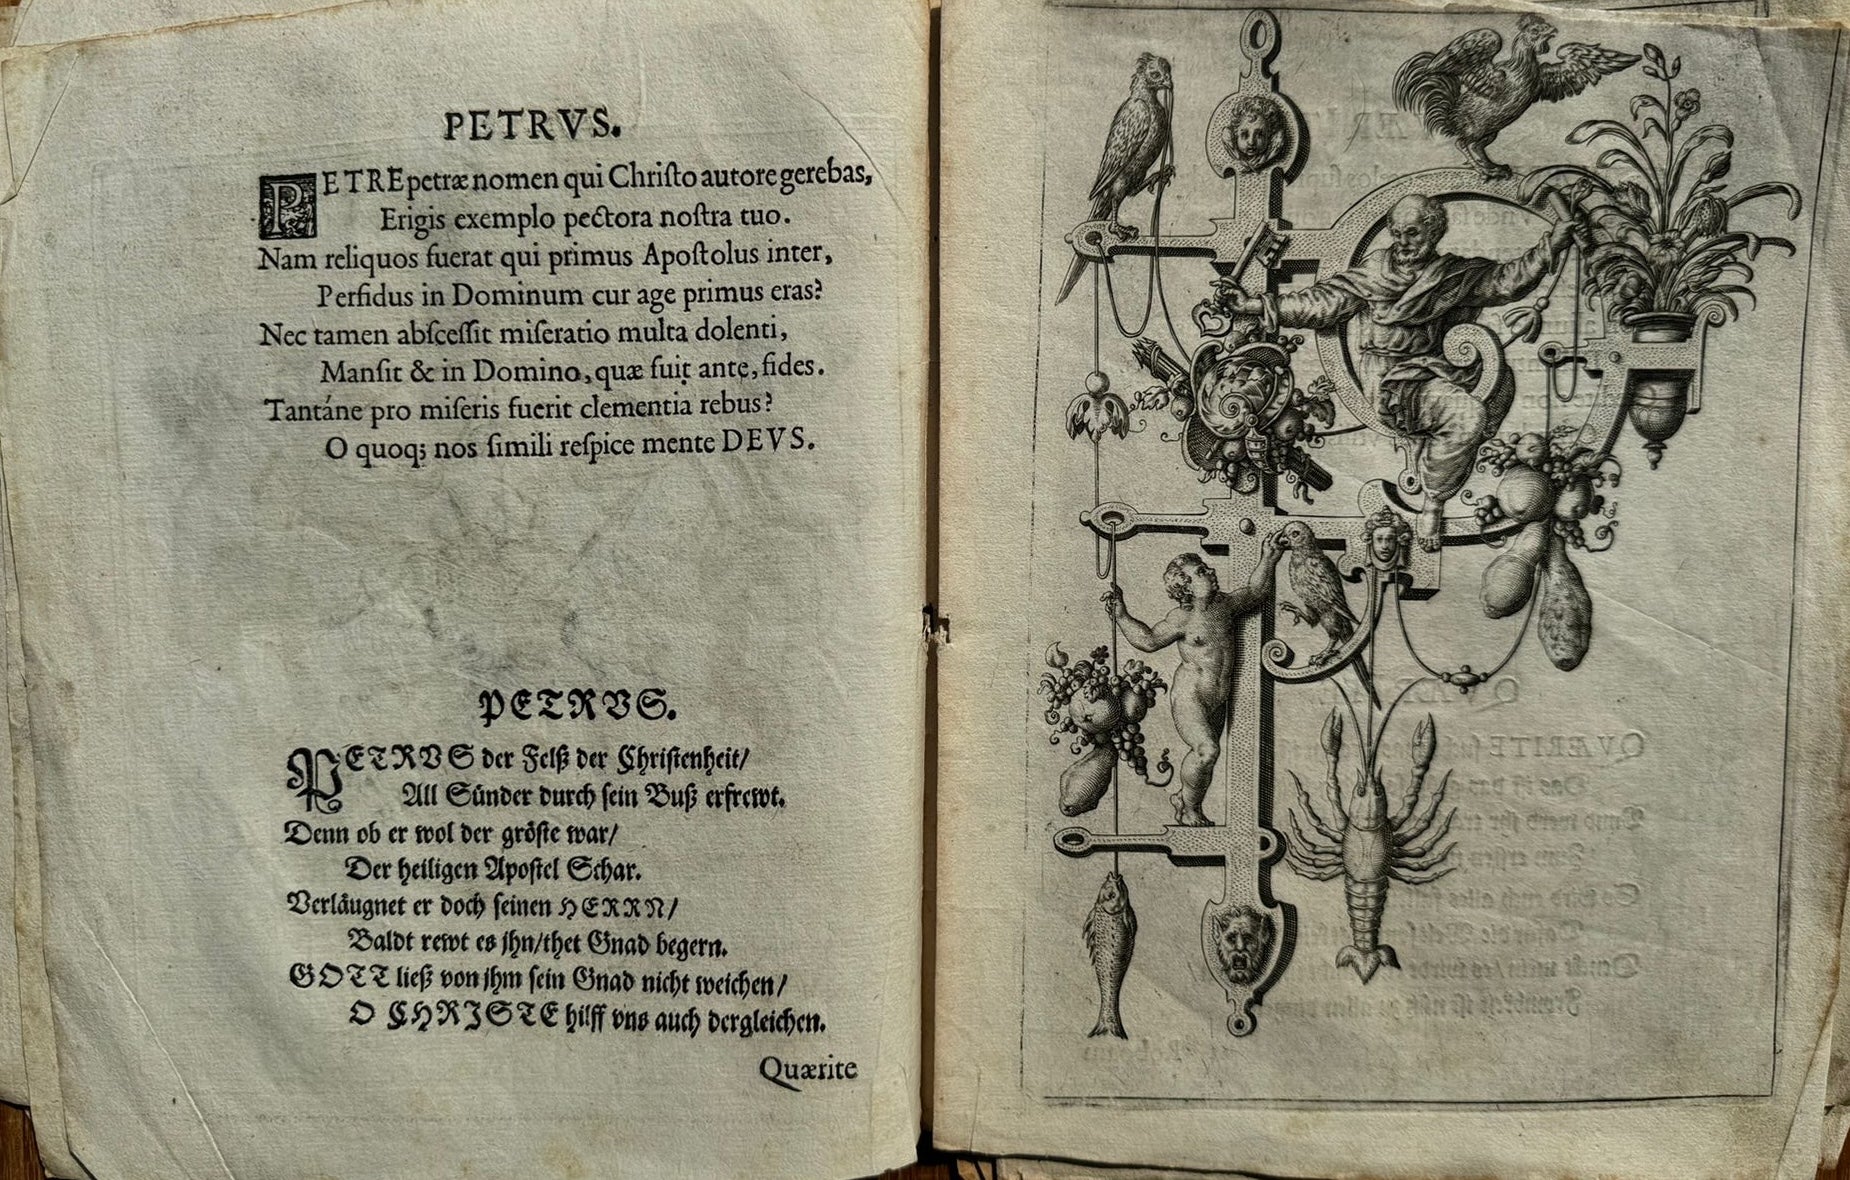 PETRVS.
PETRE petræ nomen qui Chriſto autore gerebas,
Erigis exemplo pectora noſtra tuo.
Nam reliquos fuerat qui primus Apoſtolus inter,
Perfidus in Dominum cur age primus eras?
Nec tamen abſceſſit miſeratio multa dolenti,
Manſit & in Domino, quæ fuit ante, fides.
Tantáne pro miſeris fuerit clementia rebus?
O quoq; nos ſimili reſpice mente DEVS.
PETRVS.
PETRVS der Felß der Chriſtenheit/
All Sünder durch ſein Buß erfrewt.
Denn ob er wol der gröſte war/
Der heiligen Apoſtel Schar.
Verläugnet er doch ſeinen HERRN/
Baldt rewt es jhn/thet Gnad begern.
GOTT ließ von jhm ſein Gnad nicht weichen/
O CHRJSTE hilff vns auch dergleichen.
Quærite